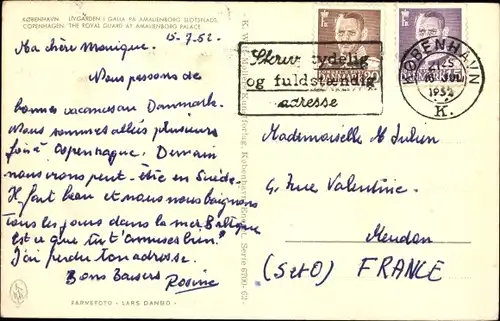 KØBENHAVN. LIVGARDEN I GALLA PÅ AMALIENBORG SLOTSPLADS.
COPENHAGEN. THE ROYAL GUARD AT AMALIENBORG PALACE
15-7.52.
Ma chère Monique.
Nous passons de
bonnes vacances au Danemark.
Nous sommes allés plusieurs
fois à Copenhague. Demain
nous irons peut-être en Suède.
Il fait beau et nous nous baignons
tous les jours dans la mer Baltique
Est ce que tu t'amuses bien?
J'ai perdu ton adresse.
Bons Baisers
Rosine
FARVEFOTO - LARS DANBO -
Kunstforlag, København Serie 6700-62
Skriv tydelig
og fuldstændig
adresse
KØBENHAVN
1952
K.
Mademoiselle M Julien
9, Rue Valentine.
Meudon
(S et O) FRANCE